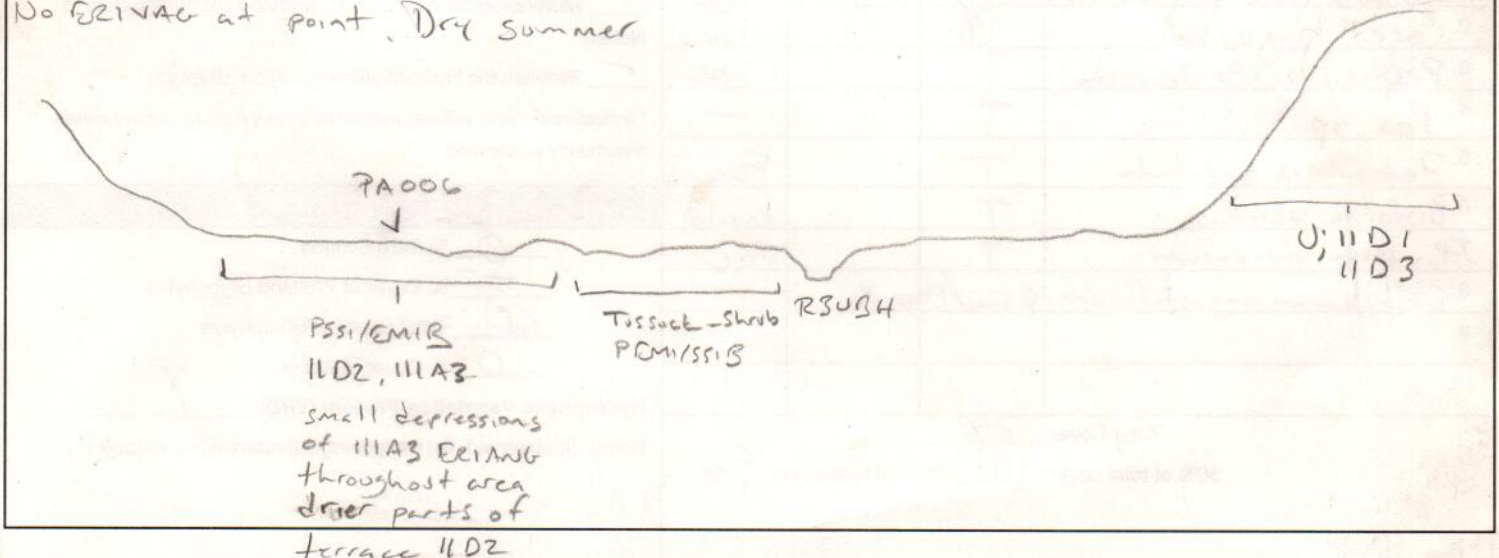 No ERIVAG at point. Dry Summer
PA006
U; IID1
IID3
PSS1/EM1B
IID2, IIIA3
small depressions
of IIIA3 ERIANG
throughout area
drier parts of
terrace IID2
Tussock-Shrub
PEM1/SS1B
R3UBH